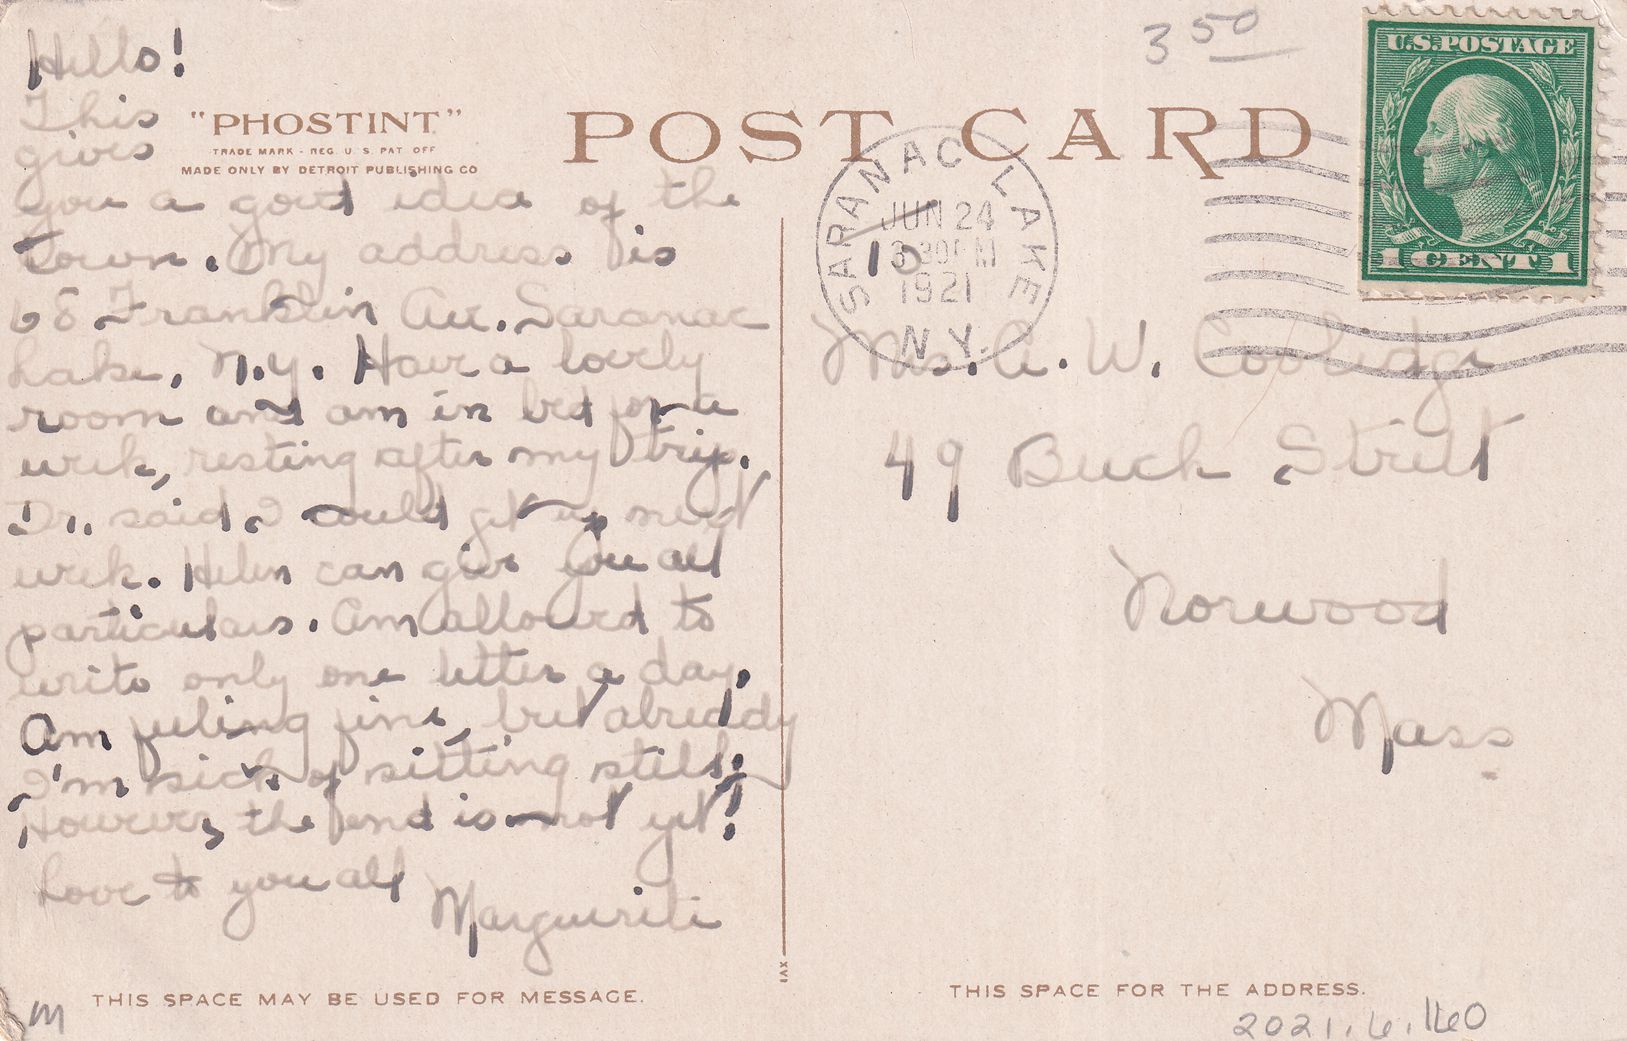 Hello!
This
gives
you a good idea of the
town. My address is
68 Franklin Av. Saranac
Lake, N.Y. Have a lovely
room and am in bed for a
week, resting after my trip.
Dr. said I could get up next
week. Helen can give you all
particulars. Am allowed to
write only one letter a day.
Am feeling fine, but already
I'm sick of sitting still.
However, the end is not yet!
Love to you all
Marguerite
"PHOSTINT"
TRADE MARK - REG. U. S. PAT. OFF
MADE ONLY BY DETROIT PUBLISHING CO
POST CARD
3 50
U.S. POSTAGE
1 CENT 1
SARANAC LAKE
JUN 24
3 30 PM
1921
N.Y.
10
A. W. Coolidge
49 Buck Street
Norwood
Mass
XVI
THIS SPACE MAY BE USED FOR MESSAGE.
THIS SPACE FOR THE ADDRESS.
M
2021.6.160